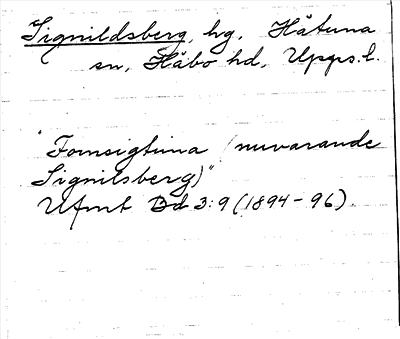 Signildsberg, hg, Håtuna
sn, Håbo hd, Upps. l.
"Fornsigtuna (nuvarande
Signilsberg)"
Ufmt Bd 3:9 (1894-96).